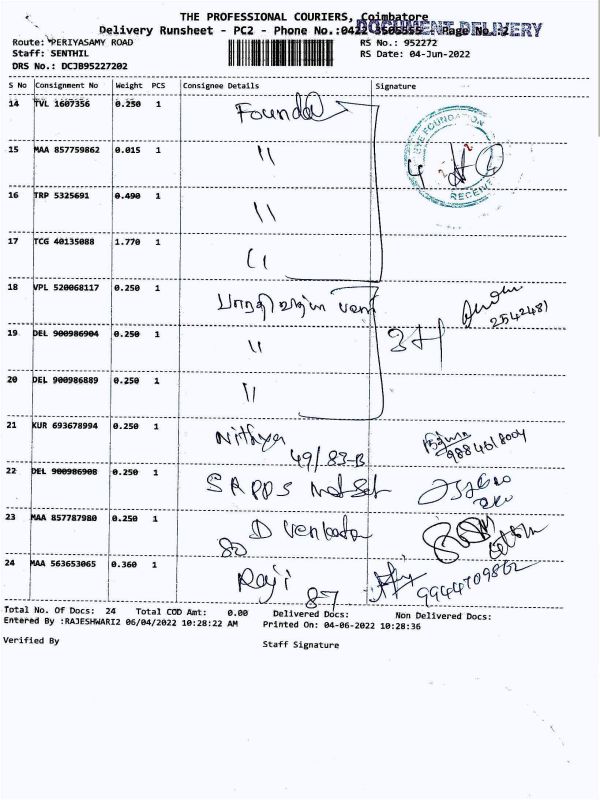 THE PROFESSIONAL COURIERS, Coimbatore
Delivery Runsheet - PC2 - Phone No.:0422 Page No.:2
DOCUMENT DELIVERY
Route: PERIYASAMY ROAD RS No.: 952272
Staff: SENTHIL RS Date: 04-Jun-2022
DRS No.: DCJB95227202
S No Consignment No Weight PCS Consignee Details Signature
14 TVL 1607356 0.250 1
EYE FOUNDATION
RECEIVED
15 MAA 857759862 0.015 1 "
16 TRP 5325691 0.490 1 "
17 TCG 40135088 1.770 1 "
18 VPL 520068117 0.250 1 2542481
19 DEL 900986904 0.250 1 "
20 DEL 900986889 0.250 1 "
21 KUR 693678994 0.250 1 Nithya
49/83-B
22 DEL 900986908 0.250 1
23 MAA 857787980 0.250 1 D Venkata
80
24 MAA 563653065 0.360 1 Raji
87
Total No. Of Docs: 24 Total COD Amt: 0.00 Delivered Docs: Non Delivered Docs:
Entered By :RAJESHWARI2 06/04/2022 10:28:22 AM Printed On: 04-06-2022 10:28:36
Verified By Staff Signature